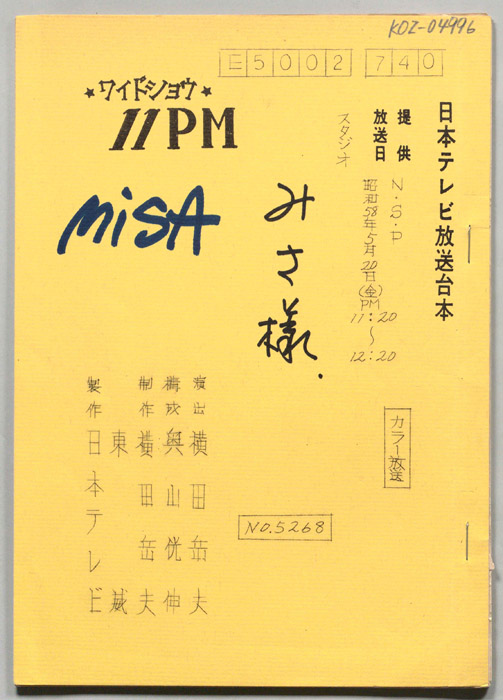 KOZ-04996
E5002 740
★ワイドショウ★
11PM
日本テレビ放送台本
提供 N・S・P
放送日 昭和58年5月20日(金)PM 11:20〜12:20
スタジオ
MiSA
みさ様.
カラー放送
NO.5268
演出 横田岳夫
構成 奥山侊伸
制作 横田岳夫
東 威
製作 日本テレビ